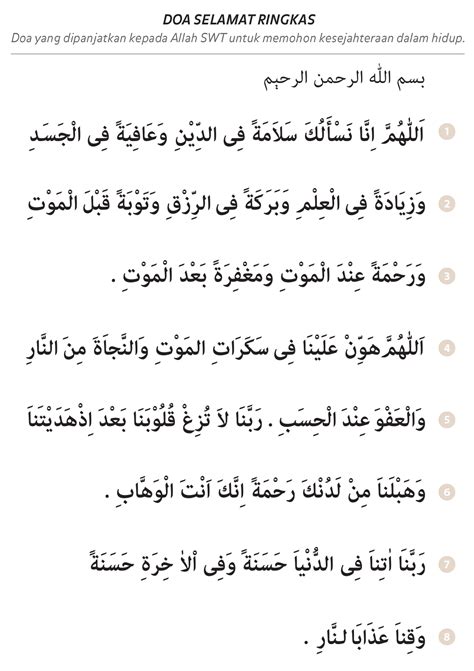 DOA SELAMAT RINGKAS
Doa yang dipanjatkan kepada Allah SWT untuk memohon kesejahteraan dalam hidup.
بسم الله الرحمن الرحيم
اَللّٰهُمَّ اِنَّا نَسْأَلُكَ سَلاَمَةً فِى الدِّيْنِ وَعَافِيَةً فِى الْجَسَدِ 1
وَزِيَادَةً فِى الْعِلْمِ وَبَرَكَةً فِى الرِّزْقِ وَتَوْبَةً قَبْلَ الْمَوْتِ 2
وَرَحْمَةً عِنْدَ الْمَوْتِ وَمَغْفِرَةً بَعْدَ الْمَوْتِ . 3
اَللّٰهُمَّ هَوِّنْ عَلَيْنَا فِى سَكَرَاتِ الْمَوْتِ وَالنَّجاَةَ مِنَ النَّارِ 4
وَالْعَفْوَ عِنْدَ الْحِسَبِ . رَبَّنَا لاَ تُزِغْ قُلُوْبَنَا بَعْدَ اِذْهَدَيْتَناَ 5
وَهَبْلَناَ مِنْ لَدُنْكَ رَحْمَةً اِنَّكَ اَنْتَ الْوَهَّابِ . 6
رَبَّنَا اٰتِناَ فِى الدُّنْياَ حَسَنَةً وَفِى اْلاٰ خِرَةِ حَسَنَةً 7
وَقِناَ عَذَابَا لنَّارِ . 8